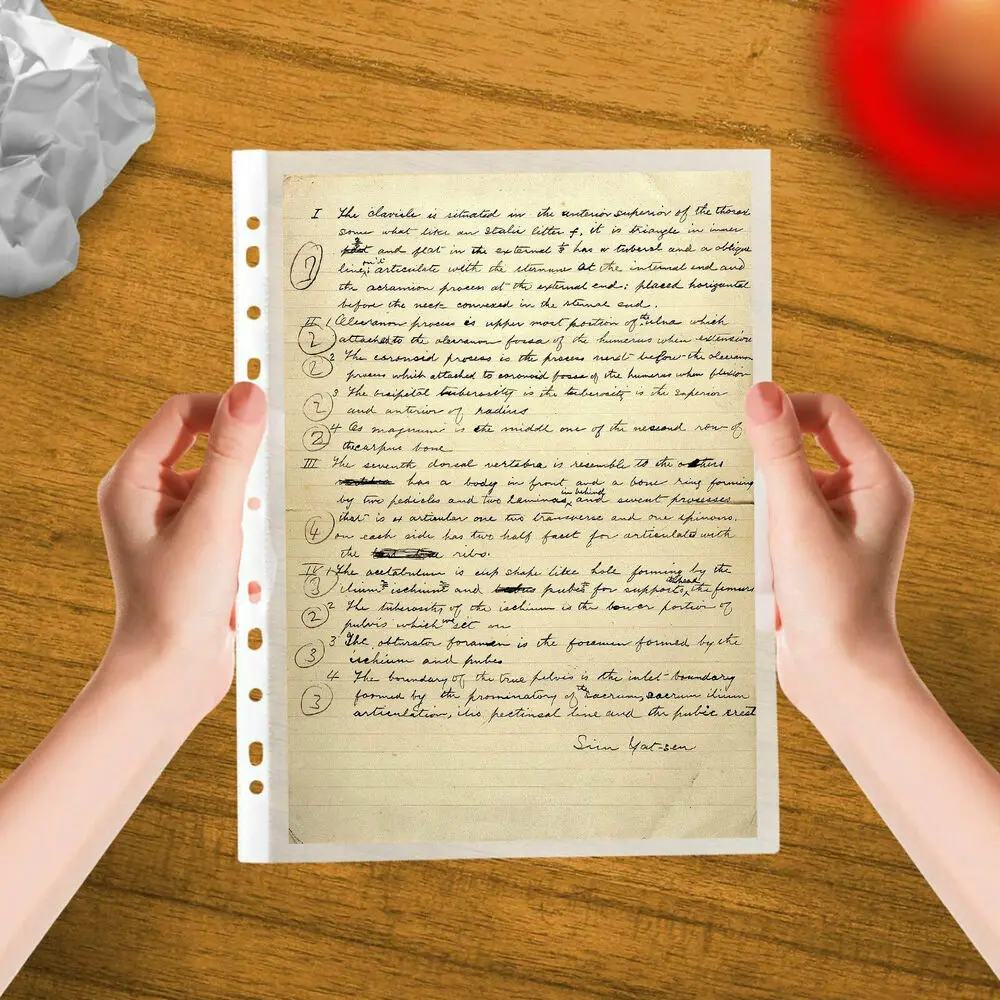 I The clavicle is situated in the anterior superior of the thorax
some what like an Italic litter f, it is triangle in inner
and flat in the external & has a tubercal and a oblique
line, articulate with the sternum at the internal end and
7
the acramion process at the external end: placed horizontal
before the neck convexed in the sternal end.
II 1 Olecranon process is upper most portion of the ulna which
2
attached to the olecranum fossa of the humerus when extension
2 The coronoid process is the process next before the olecranon
2
process which attached to coronoid fossa of the humerus when flexion
3 The bicipital tuberosity is the tuberosity is the superior
2
and anterior of radius
4 Os magnum is the middle one of the second row of
2
the carpus bone
III The seventh dorsal vertebra is resemble to the others
has a body in front and a bone ring forming
by two pedicles and two laminas in behind, and seven processes
that is 4 articular one two transverse and one spinous.
4
on each side has two half facet for articulate with
the ribs.
IV 1 The acetabulum is cup shape like hole forming by the
3
ilium ischium and pubes for supports the head femurs
2 The tuberosity of the ischium is the lower portion of
2
pulvis which we set on
3 The obturator foramen is the foramen formed by the
3
ischium and pubes
4 The boundary of the true pelvis is the inlet boundary
3
formed by the prominatory of the sacrum, sacrum ilium
articulation, ilio pectinsal line and the pubic crest
Sun Yat-sen